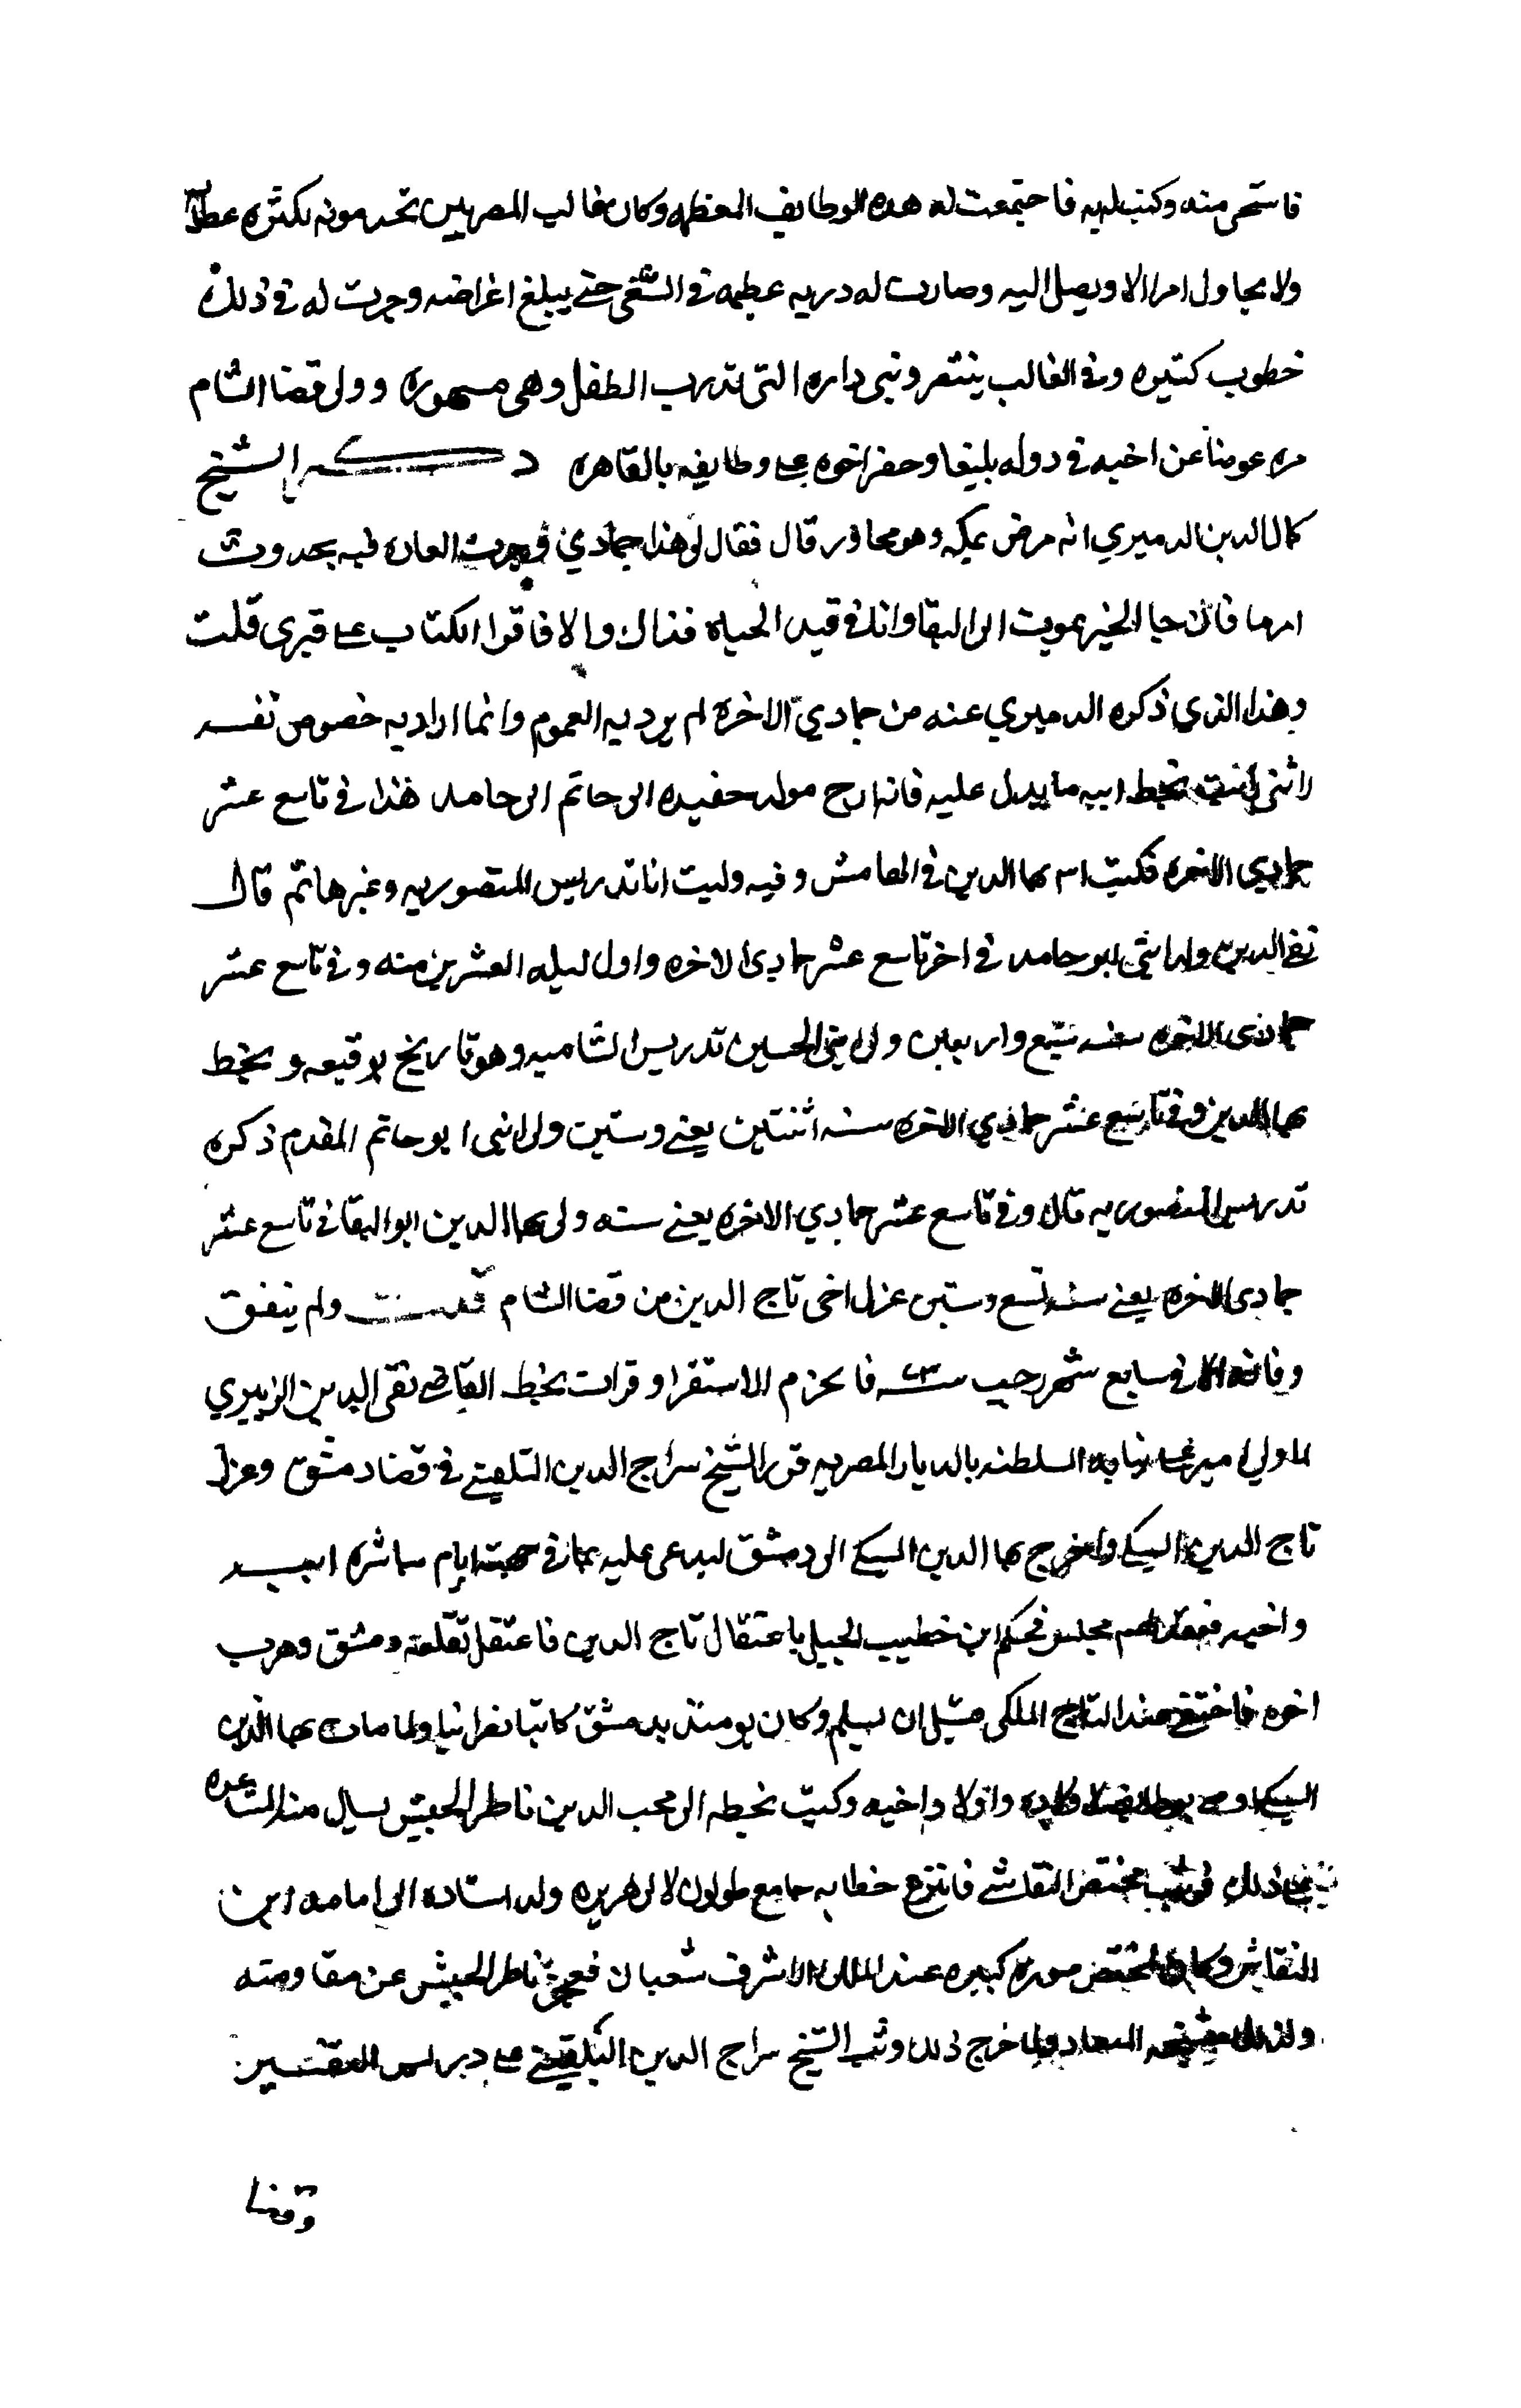 فاستحى منه وكتب له به فاجتمعت له هذه الوظايف المعظمه وكان غالب المصريين يخدمونه لكثره عطاه
ولا يحاول امرا الا ويصل اليه وصارت له دربه عظيمه في السعي حتى يبلغ اغراضه وجرت له في ذلك
خطوب كتيره وفي الغالب ينتصر وبنى داره التي بدرب الطفل وهي مشهوره وولي قضا الشام
مره عوضا عن اخيه في دوله يلبغا وحضر اخوه على وظايفه بالقاهره ذكر الشيخ
كمال الدين الدميري انه مرض بمكه وهو مجاور قال فقال لي هذا جمادي وجرت العاده فيه بحدوث
امر ما فان جا الخبر بموت ابى البقا وانا في قيد الحياه فذاك والا فاقرا الكتاب على قبرى قلت
وهذا الذي ذكره الدميري عنه من جمادي الاخره لم يرد به العموم وانما اراد به خصوص نفسه
بخط ابيه ما يدل عليه فانه ارخ مولد حفيده ابى حاتم ابن ابى حامد هذا في تاسع عشر
جمادي الاخره فكتب بها الدين في الهامش وفيه وليت انا تدريس المنصوريه وغيرها ثم قال
تقي الدين ولد ابني ابو حامد في اخر تاسع عشر جمادى الاخره واول ليله العشرين منه وفي تاسع عشر
جمادى الاخره سنه واربعين ولي ابني الحسين تدريس الشاميه وهو تاريخ توقيعه وبخط
بها الدين وفي تاسع عشر جمادي الاخره سنه اثنتين يعني وستين ولى ابنى ابو حاتم المقدم ذكره
تدريس المنصوريه قال وفي تاسع عشر جمادي الاخره يعني سنه ولى بها الدين ابو البقا في تاسع عشر
جمادى الاخره يعني سنه تسع وستين عزل اخى تاج الدين من قضا الشام قلت ولم يتفق
وفاته الا في سابع شهر رجب فانخرم الاستقرا وقرات بخط القاضي تقى الدين الزبيري
لما ولي امير على نيابه السلطنه بالديار المصريه قرر الشيخ سراج الدين البلقيني في قضا دمشق وعزل
تاج الدين السبكي واخرج بها الدين السبكي الى دمشق ليدعى عليه بما في جهته ايام مباشره ابيه
واخيه فعقد لهم مجلس فحكم ابن خطيب الجبل باعتقال تاج الدين فاعتقل بقلعة دمشق وهرب
اخوه فاختفى عند التاج الملكى قبل ان يسلم وكان يومئذ بدمشق كاتبا نصرانيا ولما مات بها الدين
السبكي اوصى بوظايفه لاولاده واولاد اخيه وكتب بخطه الى محب الدين ناظر الجيش يسال منه المساعده
في ذلك فوثب مختص النقاشي فانتزع خطابه جامع طولون لابى هريره ولد استاده ابى امامه ابن
النقاش وكان لمختص صوره كبيره عند الملك الاشرف شعبان فعجز ناظر الجيش عن مقاومته
الميعاد ولما خرج ذلك وثب الشيخ سراج الدين البلقيني على تدريس التفسير
وقضا